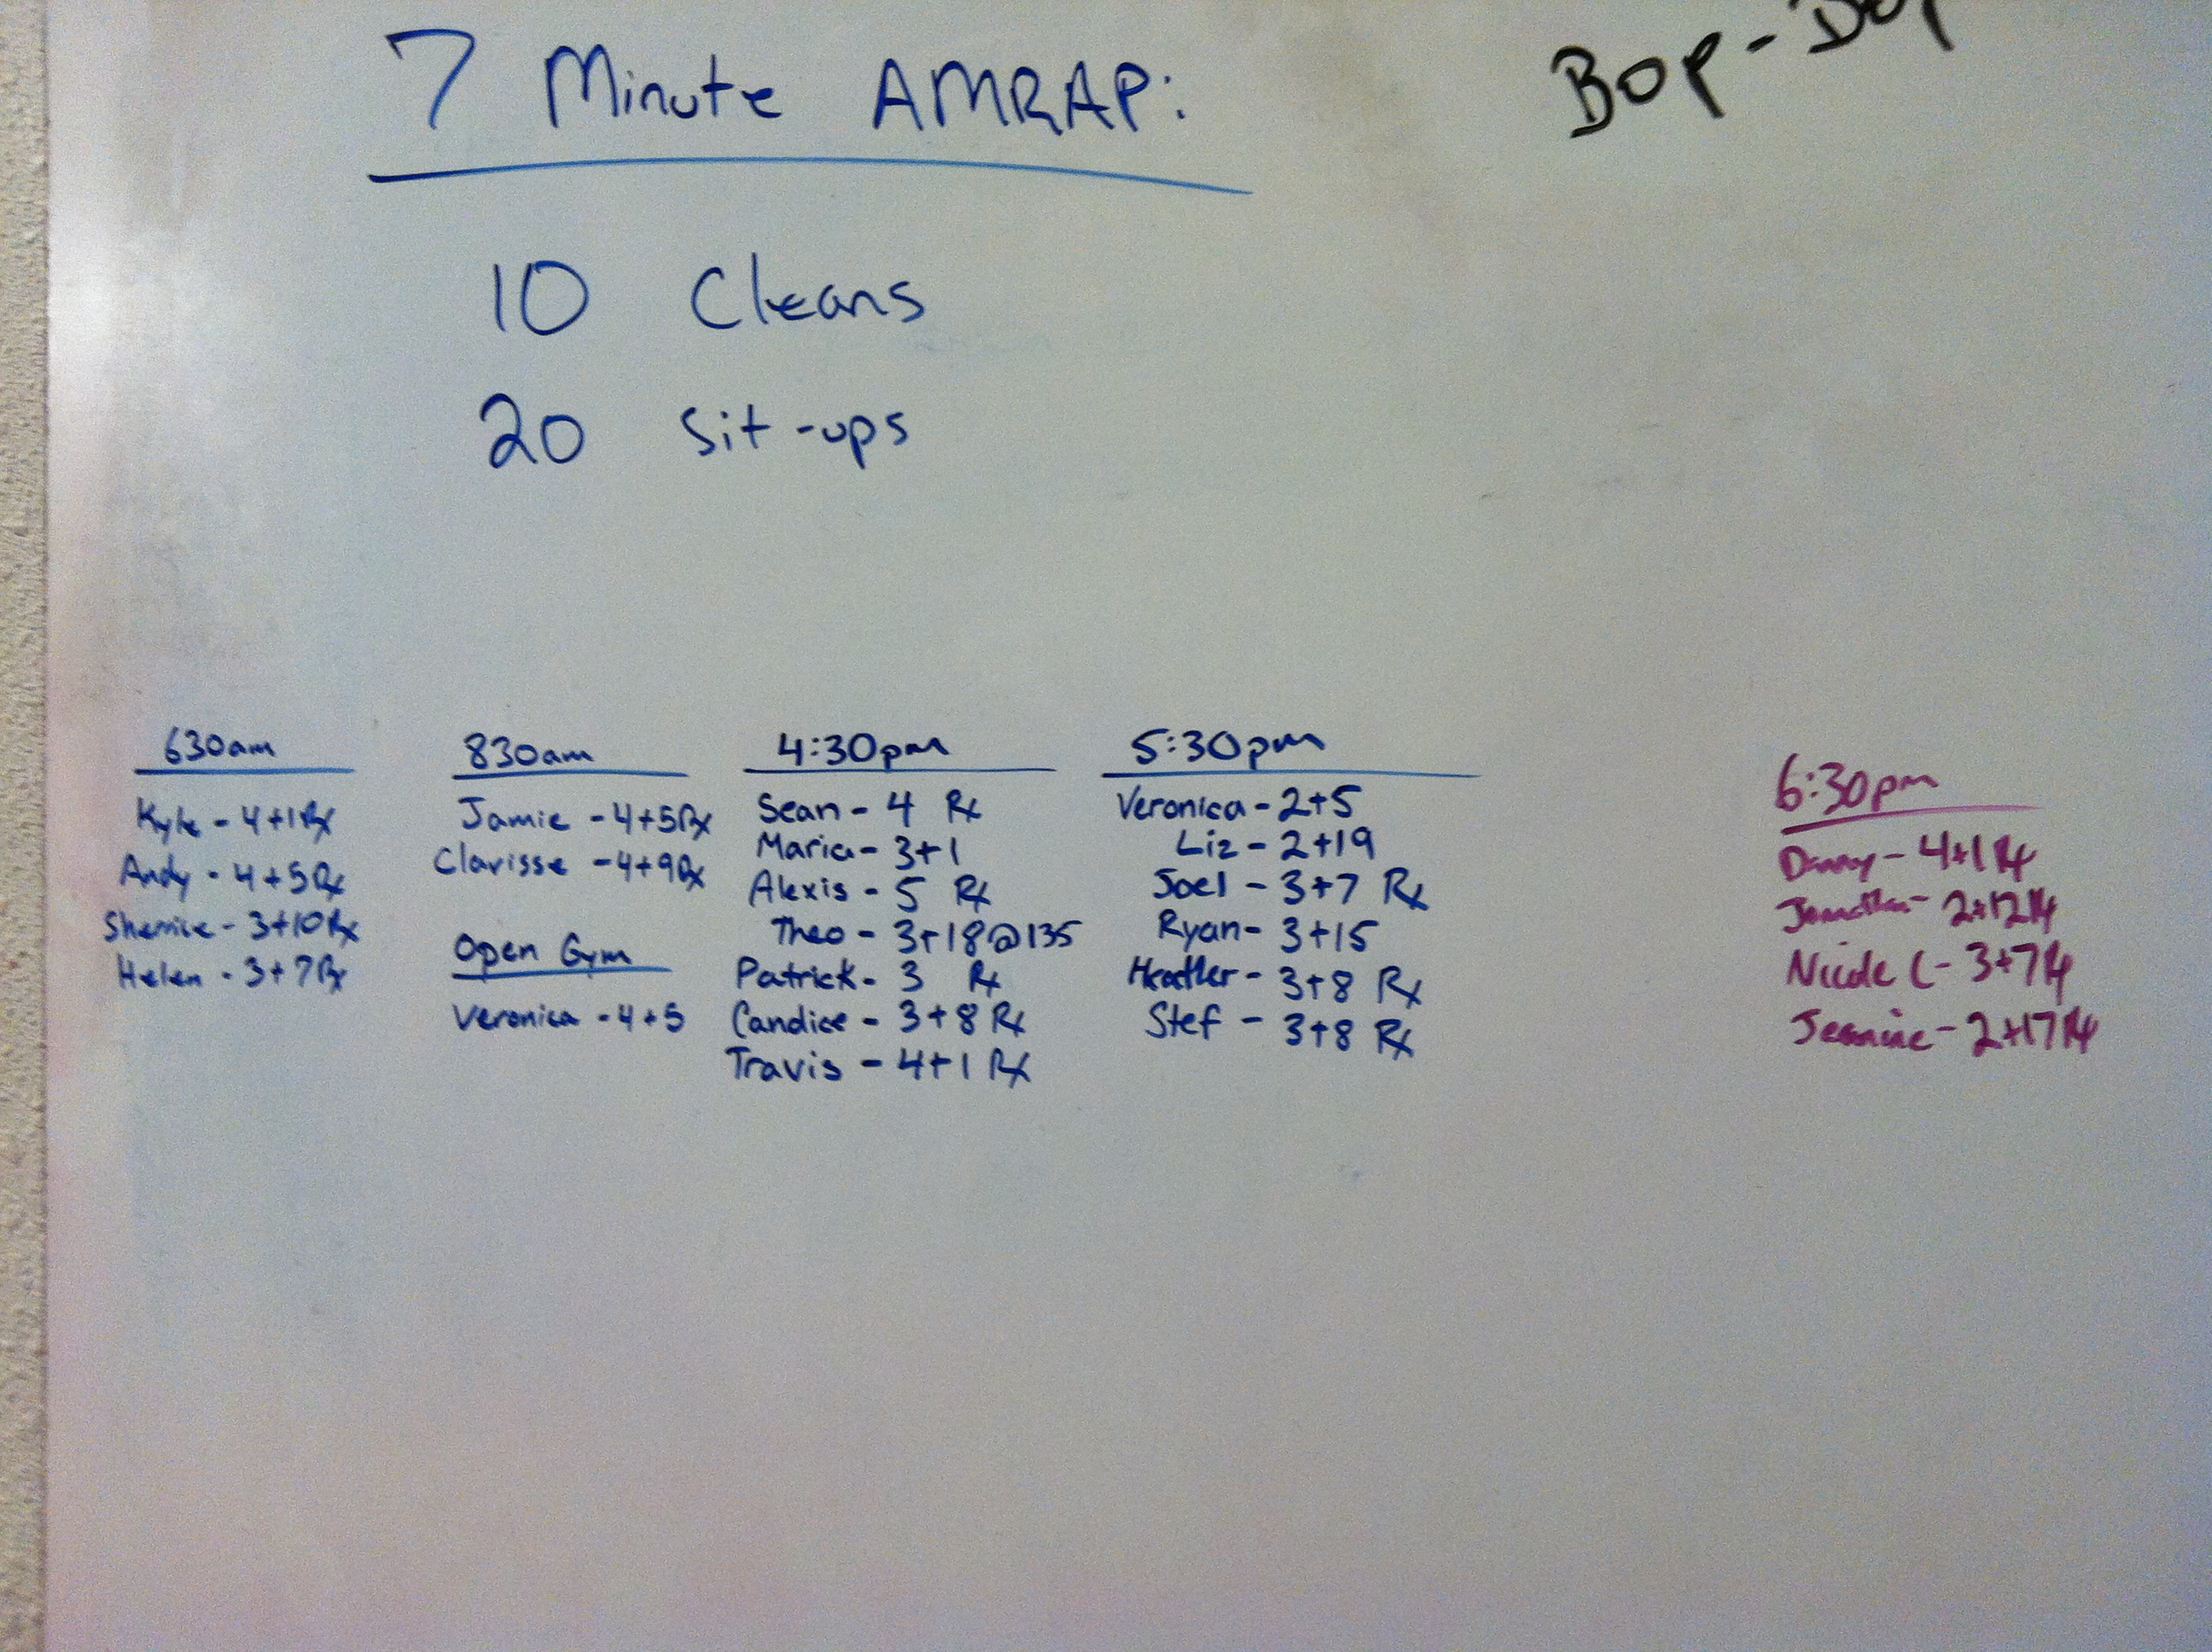 7 Minute AMRAP:
Bop-Dop
10 Cleans
20 sit-ups
630am
Kyle - 4+1 Rx
Andy - 4+5 Rx
Sherrice - 3+10 Rx
Helen - 3+7 Rx
830am
Jamie - 4+5 Rx
Clarisse - 4+9 Rx
Open Gym
Veronica - 4+5
4:30pm
Sean - 4 Rx
Maria - 3+1
Alexis - 5 Rx
Theo - 3+18 @135
Patrick - 3 Rx
Candice - 3+8 Rx
Travis - 4+1 Rx
5:30pm
Veronica - 2+5
Liz - 2+19
Joel - 3+7 Rx
Ryan - 3+15
Heather - 3+8 Rx
Stef - 3+8 Rx
6:30pm
Danny - 4+1 Rx
Jonathan - 2+12 Rx
Nicole C - 3+7 Rx
Jeanine - 2+17 Rx